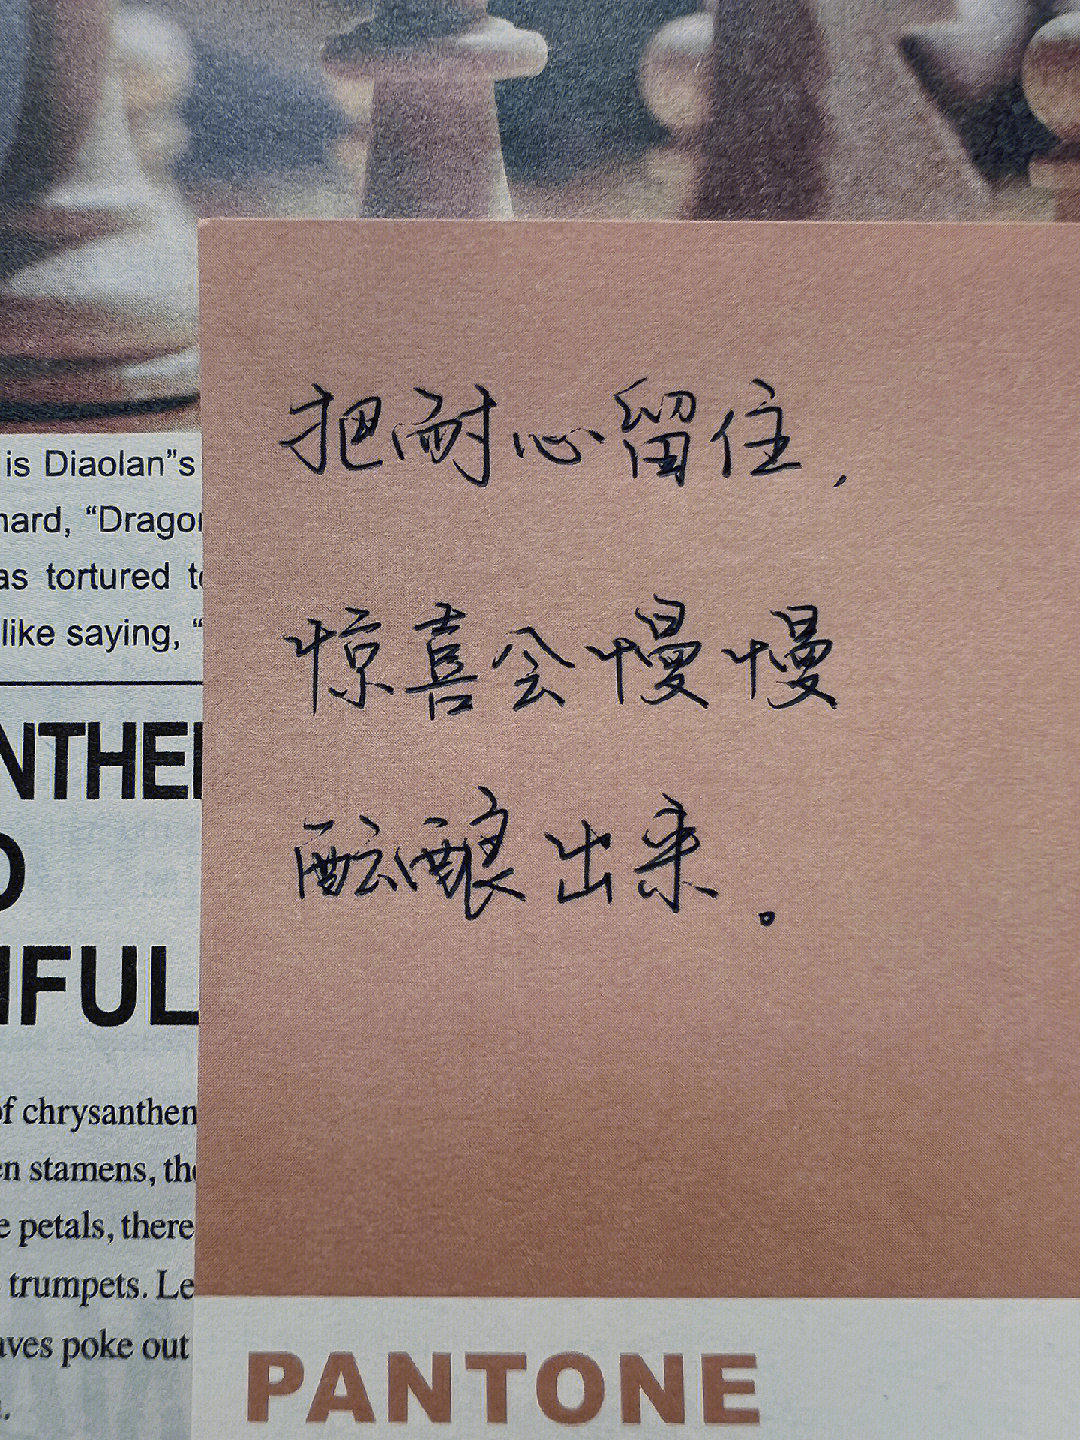 is Diaolan”s
hard, “Drago
as tortured t
like saying, “
NTHE
IFUL
of chrysanthen
en stamens, the
e petals, there
trumpets. Le
aves poke out
把耐心留住，
惊喜会慢慢
酝酿出来。
PANTONE